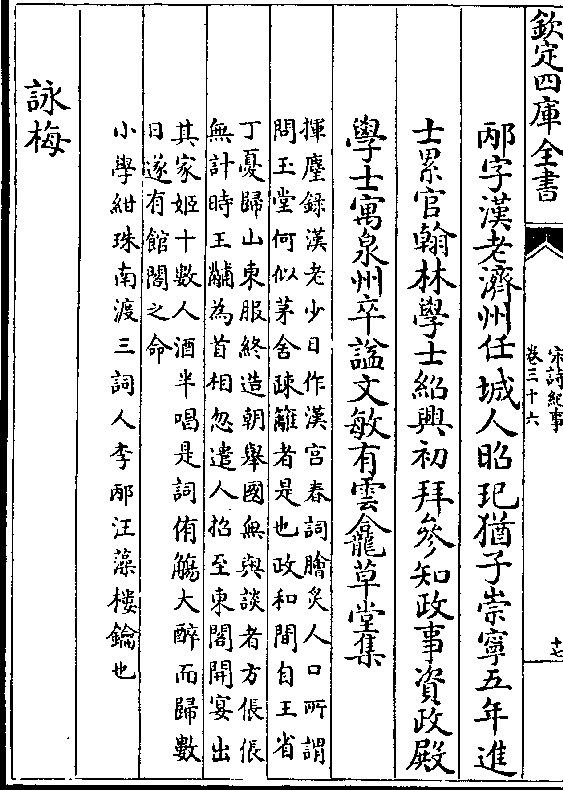 欽定四庫全書
宋詩紀事
卷三十六
十七
邴字漢老濟州任城人昭玘猶子崇寧五年進
士累官翰林學士紹興初拜參知政事資政殿
學士寓泉州卒諡文敏有雲龕草堂集
揮麈錄漢老少日作漢宫春詞膾炙人口所謂
問玉堂何似茅舍疎籬者是也政和間自王省
丁憂歸山東服終造朝舉國無與談者方倀倀
無計時王黼為首相忽遣人招至東閣開宴出
其家姬十數人酒半唱是詞侑觴大醉而歸數
日遂有館閣之命
小學紺珠南渡三詞人李邴汪藻樓鑰也
詠梅